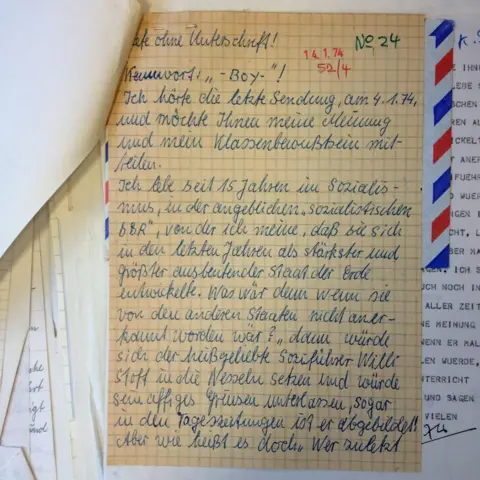 ohne Unterschrift!
No 24
14.1.74
52/4
Kennwort: „-Boy-"!
Ich hörte die letzte Sendung, am 4.1.74,
und möchte Ihnen meine Meinung
und mein Klassenbewußtsein mit-
teilen.
Ich lebe seit 15 Jahren im Sozialis-
mus, in der angeblichen „sozialistischen
DDR", von der ich meine, daß sie sich
in den letzten Jahren als stärkster und
größter ausbeutender Staat der Erde
entwickelte. Was wär denn wenn sie
von den anderen Staaten nicht aner-
kannt worden wär?„ dann würde
sich der heißgeliebte Soziführer Willi
Stoff in die Nesseln setzen und würde
sein affiges Grinsen unterlassen, sogar
in den Tageszeitungen ist er abgebildet!
Aber wie heißt es doch „Wer zuletzt
K.
IHN
LEBE
SCHEN
REN AU
ICKELT
ANER
FUEHR
WUER
NGEN
CHT, L
BER HA
AGEN. ICH S
UCH NOCH IN
ALLER ZEIT
NE MEINUNG
WENN ER HAL
LEN WUERDE,
TERRICHT
UND SAGEN
VIELEN
74